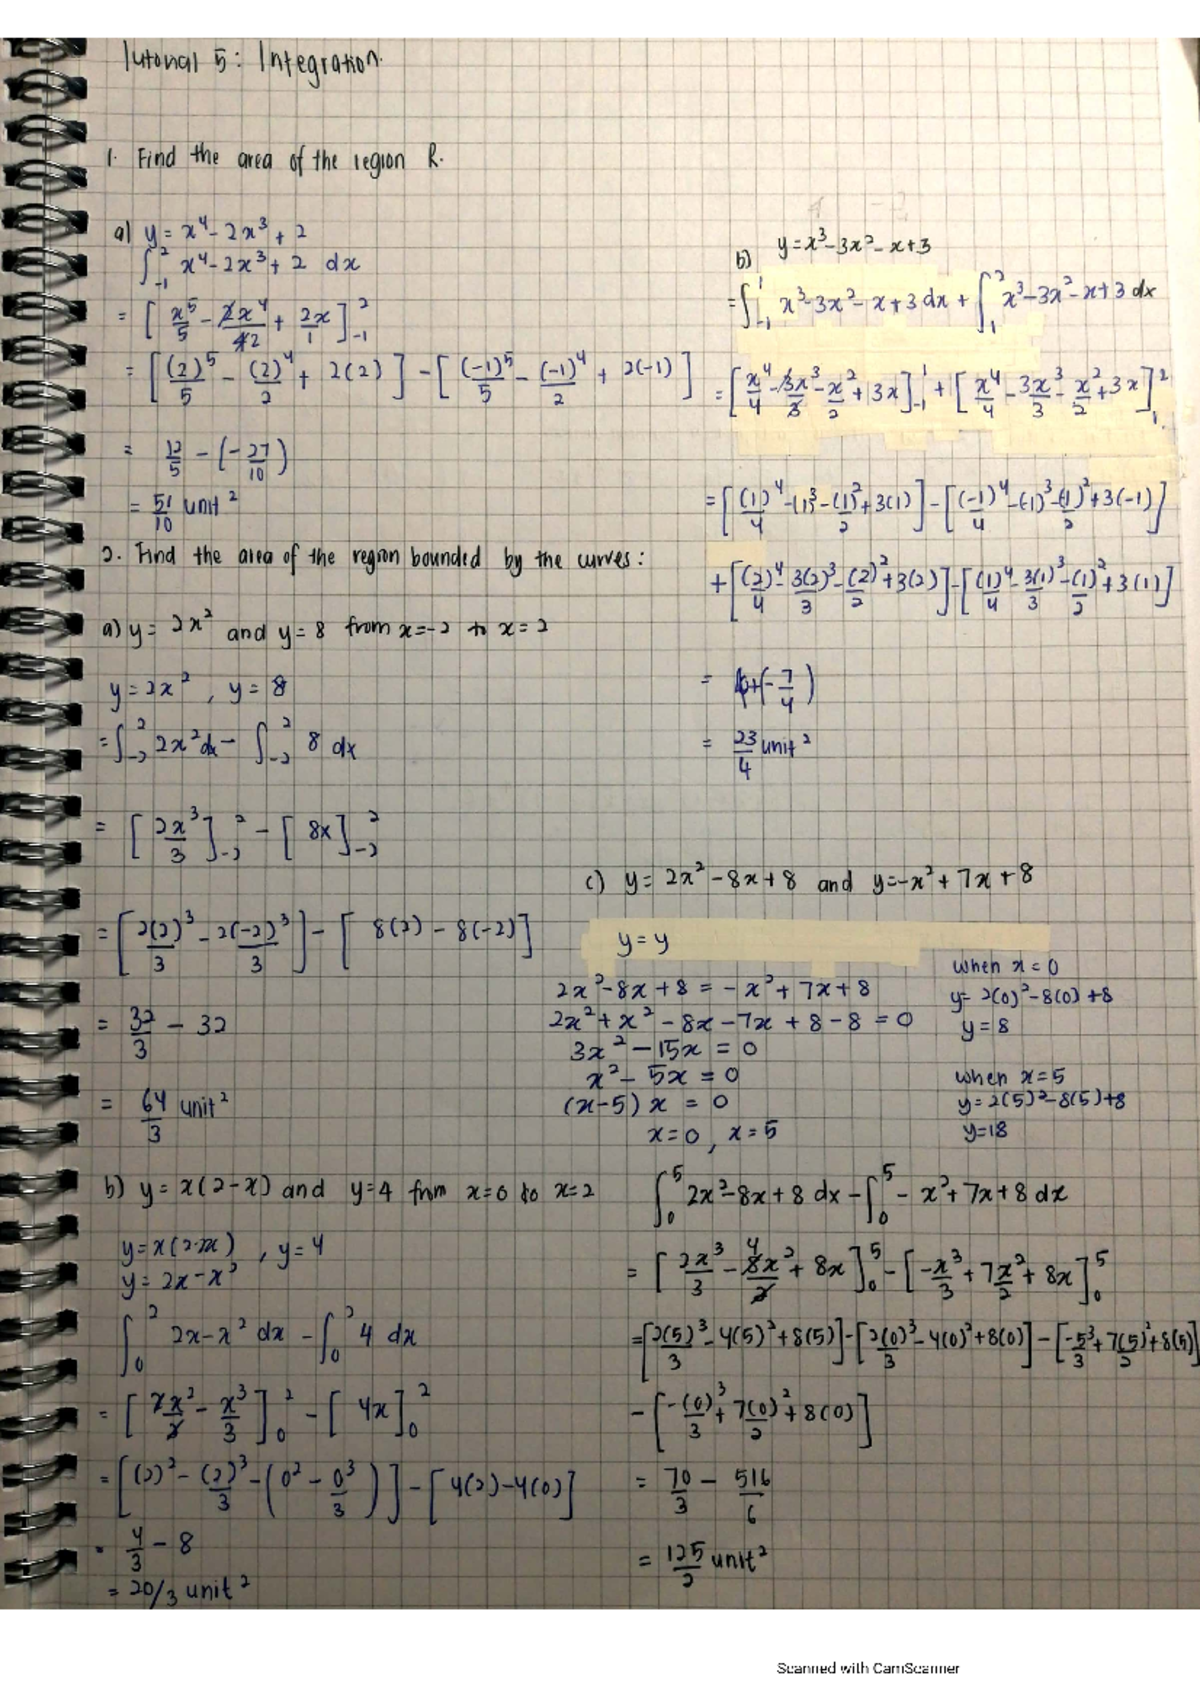 Tutorial 5: Integration.
1. Find the area of the region R.
a) y = x⁴ - 2x³ + 2
∫₋₁² x⁴ - 2x³ + 2 dx
= [x⁵/5 - 2x⁴/42 + 2x/1]₋₁²
= [(2)⁵/5 - (2)⁴/2 + 2(2)] - [(-1)⁵/5 - (-1)⁴/2 + 2(-1)]
= 12/5 - (-27/10)
= 51/10 unit²
b) y = x³ - 3x² - x + 3
= ∫₋₁¹ x³ - 3x² - x + 3 dx + ∫₁² x³ - 3x² - x + 3 dx
= [x⁴/4 - 3x³/3 - x²/2 + 3x]₋₁¹ + [x⁴/4 - 3x³/3 - x²/2 + 3x]₁²
= [(1)⁴/4 - (1)³ - (1)²/2 + 3(1)] - [(-1)⁴/4 - (-1)³ - (-1)²/2 + 3(-1)]
+ [(2)⁴/4 - 3(2)³/3 - (2)²/2 + 3(2)] - [(1)⁴/4 - 3(1)³/3 - (1)²/2 + 3(1)]
+ (-7/4)
= 23/4 unit²
2. Find the area of the region bounded by the curves:
a) y = 2x² and y = 8 from x = -2 to x = 2
y = 2x² , y = 8
= ∫₋₂² 2x² dx - ∫₋₂² 8 dx
= [2x³/3]₋₂² - [8x]₋₂²
= [2(2)³/3 - 2(-2)³/3] - [8(2) - 8(-2)]
= 32/3 - 32
= 64/3 unit²
b) y = x(2-x) and y = 4 from x = 0 to x = 2
y = x(2-x) , y = 4
y = 2x - x²
∫₀² 2x - x² dx - ∫₀² 4 dx
= [2x²/2 - x³/3]₀² - [4x]₀²
= [(2)² - (2)³/3 - (0² - 0³/3)] - [4(2) - 4(0)]
= 4/3 - 8
= 20/3 unit²
c) y = 2x² - 8x + 8 and y = -x² + 7x + 8
y = y
2x² - 8x + 8 = -x² + 7x + 8
2x² + x² - 8x - 7x + 8 - 8 = 0
3x² - 15x = 0
x² - 5x = 0
(x-5) x = 0
x = 0 , x = 5
when x = 0
y = 2(0)² - 8(0) + 8
y = 8
when x = 5
y = 2(5)² - 8(5) + 8
y = 18
∫₀⁵ 2x² - 8x + 8 dx - ∫₀⁵ -x² + 7x + 8 dx
= [2x³/3 - 48x²/2 + 8x]₀⁵ - [-x³/3 + 7x²/2 + 8x]₀⁵
= [2(5)³/3 - 4(5)² + 8(5)] - [2(0)³/3 - 4(0)² + 8(0)] - [-5³/3 + 7(5)²/2 + 8(5)]
- [-(0)³/3 + 7(0)²/2 + 8(0)]
= 70/3 - 516/6
= 125/2 unit²
Scanned with CamScanner